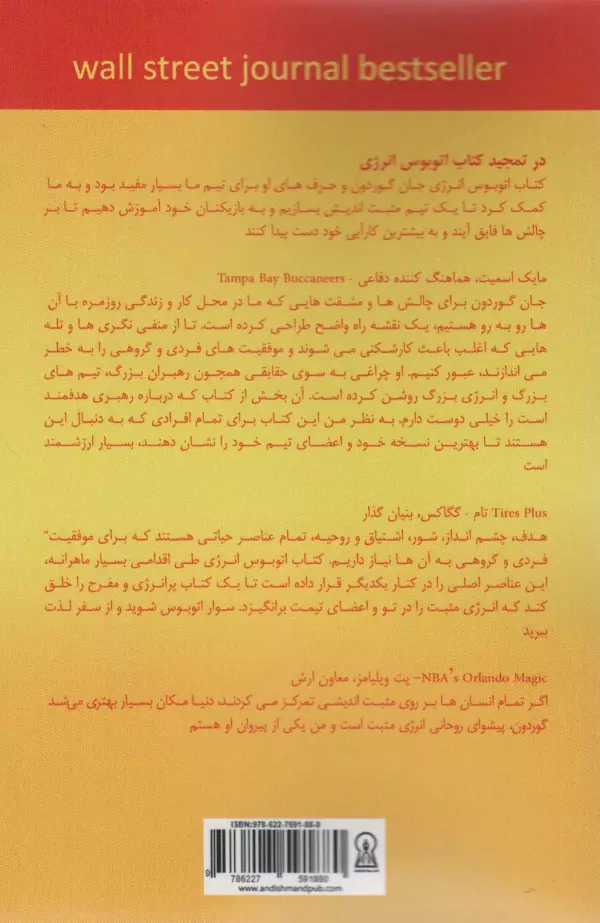 wall street journal bestseller
در تمجید کتاب اتوبوس انرژی
کتاب اتوبوس انرژی جان گوردون و حرف های او برای تیم ما بسیار مفید بود و به ما
کمک کرد تا یک تیم مثبت اندیش بسازیم و به بازیکنان خود آموزش دهیم تا بر
چالش ها فایق آیند و به بیشترین کارآیی خود دست پیدا کنند
مایک اسمیت، هماهنگ کننده دفاعی - Tampa Bay Buccaneers
جان گوردون برای چالش ها و مشقت هایی که ما در محل کار و زندگی روزمره با آن
ها رو به رو هستیم، یک نقشه راه واضح طراحی کرده است. تا از منفی نگری ها و تله
هایی که اغلب باعث کارشکنی می شوند و موفقیت های فردی و گروهی را به خطر
می اندازند، عبور کنیم. او چراغی به سوی حقایقی همچون رهبران بزرگ، تیم های
بزرگ و انرژی بزرگ روشن کرده است. آن بخش از کتاب که درباره رهبری هدفمند
است را خیلی دوست دارم. به نظر من این کتاب برای تمام افرادی که به دنبال این
هستند تا بهترین نسخه خود و اعضای تیم خود را نشان دهند، بسیار ارزشمند
است
Tires Plus تام - گگاکس، بنیان گذار
هدف، چشم انداز، شور، اشتیاق و روحیه، تمام عناصر حیاتی هستند که برای موفقیت"
فردی و گروهی به آن ها نیاز داریم. کتاب اتوبوس انرژی طی اقدامی بسیار ماهرانه،
این عناصر اصلی را در کنار یکدیگر قرار داده است تا یک کتاب پرانرژی و مفرح را خلق
کند که انرژی مثبت را در تو و اعضای تیمت برانگیزد. سوار اتوبوس شوید و از سفر لذت
ببرید
NBA's Orlando Magic– پت ویلیامز، معاون ارش
اگر تمام انسان ها بر روی مثبت اندیشی تمرکز می کردند، دنیا مکان بسیار بهتری می‌شد
گوردون، پیشوای روحانی انرژی مثبت است و من یکی از پیروان او هستم
ISBN:978-622-7591-88-0
9 786227 591880
www.andishmandpub.com